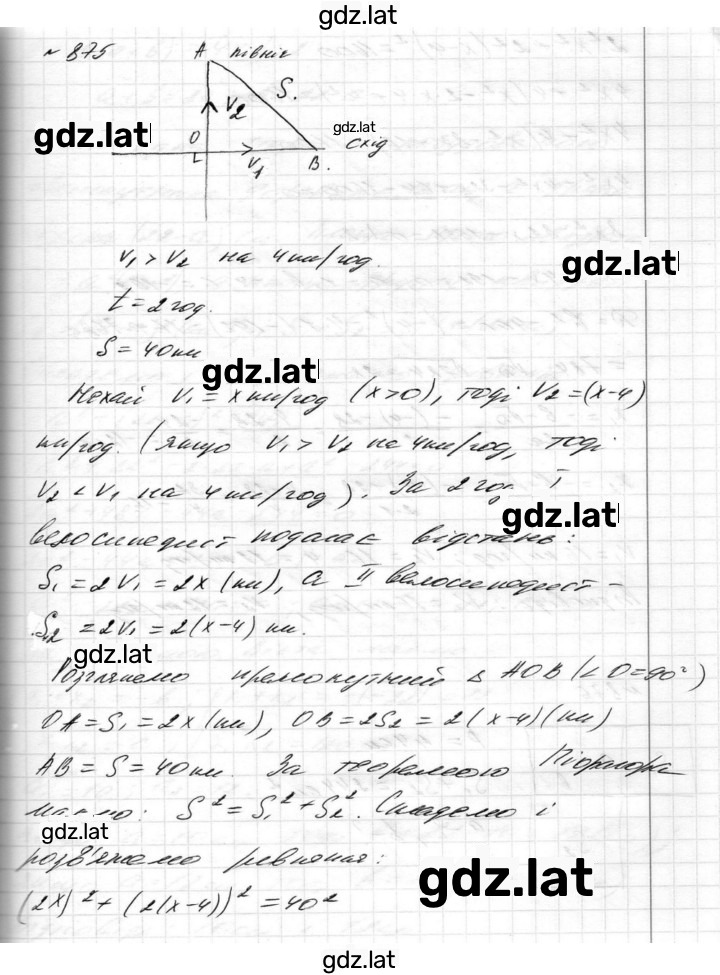 gdz.lat
№ 875
A північ
S.
V2
gdz.lat
gdz.lat
O
схід
L
V1
B.
V1 > V2 на 4 км/год.
gdz.lat
t = 2 год.
S = 40 км
gdz.lat
Нехай V1 = x км/год (x>0), тоді V2 = (x-4)
км/год. (якщо V1 > V2 на 4 км/год, тоді
V2 < V1 на 4 км/год). За 2 год I
gdz.lat
велосипедист подолає відстань:
S1 = 2V1 = 2x (км), а II велосипедист –
S2 = 2V1 = 2(x-4) км.
gdz.lat
Розглянемо прямокутний Δ AOB (∠O=90°)
OA = S1 = 2x (км), OB = 2S2 = 2(x-4)(км)
AB = S = 40 км. За теоремою Піфагора
маємо: S² = S1² + S2². Складемо і
gdz.lat
розв'яжемо рівняння:
gdz.lat
(2x)² + (2(x-4))² = 40²
gdz.lat